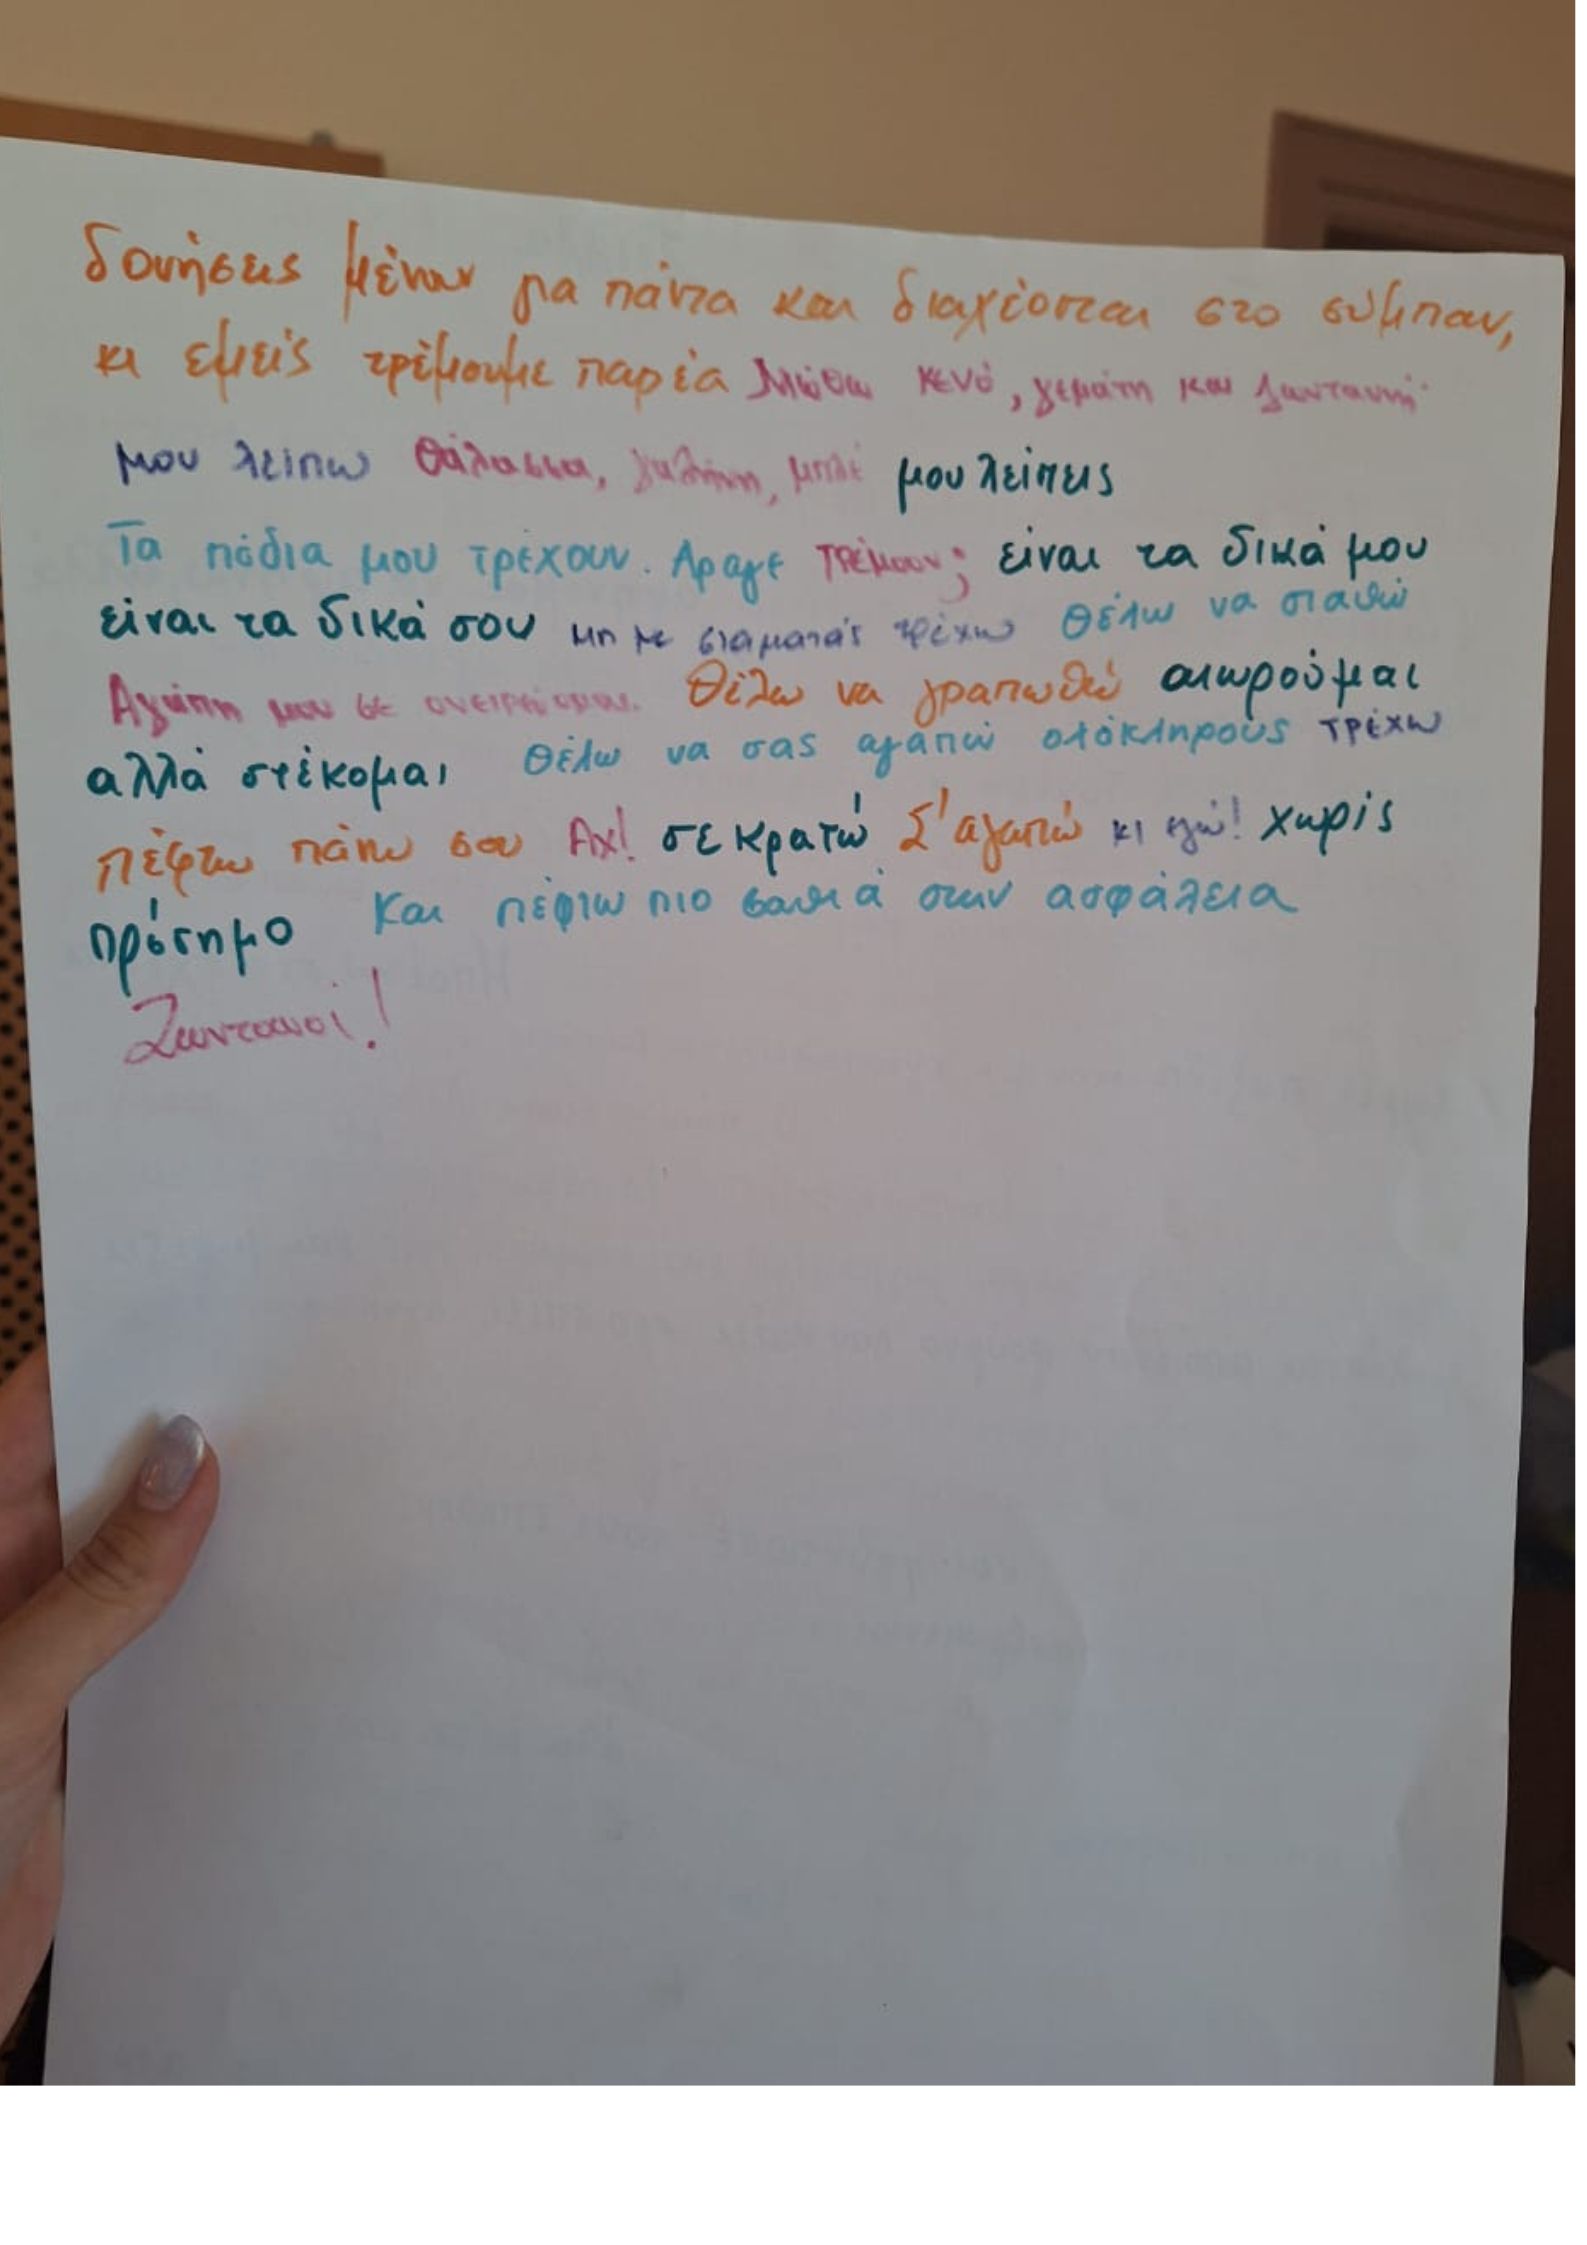 δονήσεις μέναν για πάντα και διαχέονται στο σύμπαν,
κι εμείς τρέμουμε παρέα Νιώθω κενό, γεμάτη και ζωντανή
μου λείπω θάλασσα, γαλήνη, μπλέ μου λείπεις
Τα πόδια μου τρέχουν. Άραγε τρέμουν; είναι τα δικά μου
είναι τα δικά σου μη με σταματάς τρέχω θέλω να σταθώ
Αγάπη μου σε ονειρεύομαι. Θέλω να γραπωθώ αιωρούμαι
αλλά στέκομαι θέλω να σας αγαπώ ολόκληρους τρέχω
πέφτω πάνω σου Αχ! σε κρατώ Σ'αγαπώ κι εγώ! χωρίς
πρόσημο Και πέφτω πιο βαθιά στην ασφάλεια
Ζωντανοί!